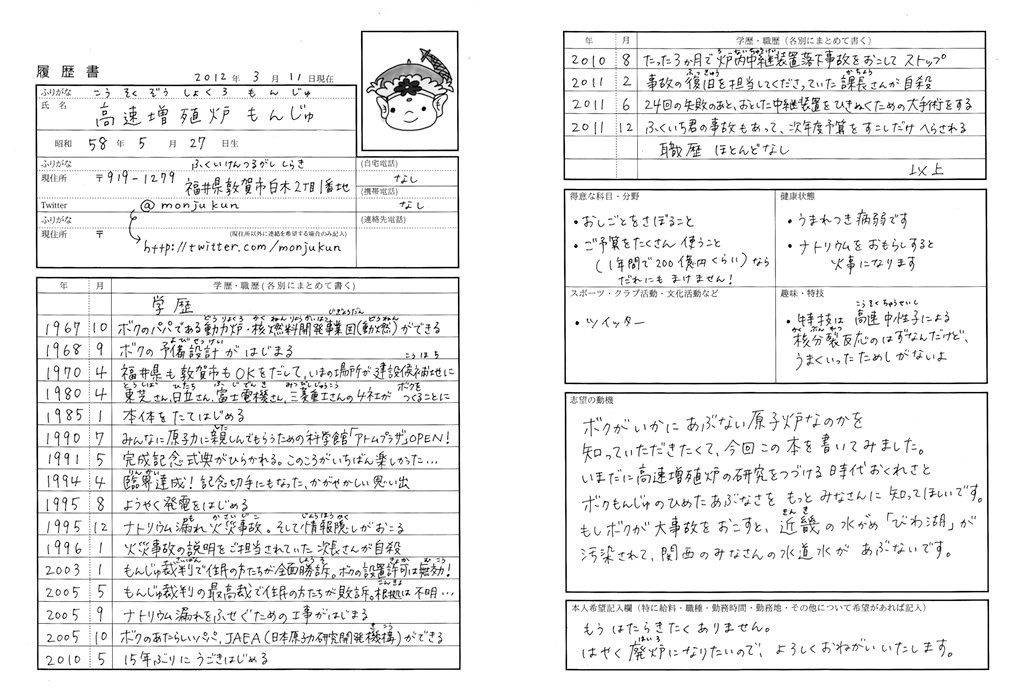 履歴書
2012年 3月 11日現在
ふりがな こうそくぞうしょくろ もんじゅ
氏名
高速増殖炉 もんじゅ
昭和 58年 5月 27日生
ふりがな ふくいけんつるがし しらき
(自宅電話)
現住所 〒919-1279
福井県敦賀市白木2丁目1番地
なし
(携帯電話)
Twitter @monjukun
なし
ふりがな
(連絡先電話)
現住所 〒 (現住所以外に連絡を希望する場合のみ記入)
http://twitter.com/monjukun
年 月 学歴・職歴(各別にまとめて書く)
学歴
どうりょくろ かくねんりょうかいはつじぎょうだん どうねん
1967 10 ボクのパパである動力炉・核燃料開発事業団(動燃)ができる
よびせっけい
1968 9 ボクの予備設計がはじまる
こうほち
1970 4 福井県も敦賀市もOKをだして、いまの場所が建設候補地に
とうしば ひたち ふじでんき みつびしじゅうこう ボクを
1980 4 東芝さん、日立さん、富士電機さん、三菱重工さんの4社が つくることに
1985 1 本体をたてはじめる
した
1990 7 みんなに原子力に親しんでもらうための科学館「アトムプラザ」OPEN!
1991 5 完成記念式典がひらかれる。このころがいちばん楽しかった…
りんかい
1994 4 臨界達成!記念切手にもなった、かがやかしい思い出
1995 8 ようやく発電をはじめる
も かさいじこ じょうほうかく
1995 12 ナトリウム漏れ火災事故。そして情報隠しがおこる
1996 1 火災事故の説明をご担当されていた次長さんが自殺
さいばん しょうそ むこう
2003 1 もんじゅ裁判で住民の方たちが全面勝訴。ボクの設置許可は無効!
こんきょ
2005 5 もんじゅ裁判の最高裁で住民の方たちが敗訴。根拠は不明…
2005 9 ナトリウム漏れをふせぐための工事がはじまる
きこう
2005 10 ボクのあたらしいパパ、JAEA(日本原子力研究開発機構)ができる
2010 5 15年ぶりにうごきはじめる
年 月 学歴・職歴(各別にまとめて書く)
ろないちゅうけい
2010 8 たった3か月で炉内中継装置落下事故をおこしてストップ
ふっきゅう かちょう
2011 2 事故の復旧を担当してくださっていた課長さんが自殺
2011 6 24回の失敗のあと、おといた中継装置をひきぬくための大手術をする
2011 12 ふくいち君の事故もあって、次年度予算をすこしだけへらされる
職歴 ほとんどなし
以上
得意な科目・分野
・おしごとをさぼること
・ご予算をたくさん使うこと
(1年間で200億円くらい)なら
だれにもまけません!
健康状態
・うまれつき病弱です
・ナトリウムをおもらしすると
火事になります
スポーツ・クラブ活動・文化活動など
・ツイッター
趣味・特技
こうそくちゅうせいし
・特技は高速中性子による
かくぶんれつ
核分裂反応のはずなんだけど、
うまくいったためしがないよ
志望の動機
ボクがいかにあぶない原子炉なのかを
知っていただきたくて、今回この本を書いてみました。
いまだに高速増殖炉の研究をつづける時代おくれさと
ボクもんじゅのひめたあぶなさをもっとみなさんに知ってほしいです。
きんき
もしボクが大事故をおこすと、近畿の水がめ「びわ湖」が
汚染されて、関西のみなさんの水道水があぶないです。
本人希望記入欄(特に給料・職種・勤務時間・勤務地・その他について希望があれば記入)
もうはたらきたくありません。
はいろ
はやく廃炉になりたいので、よろしくおねがいいたします。